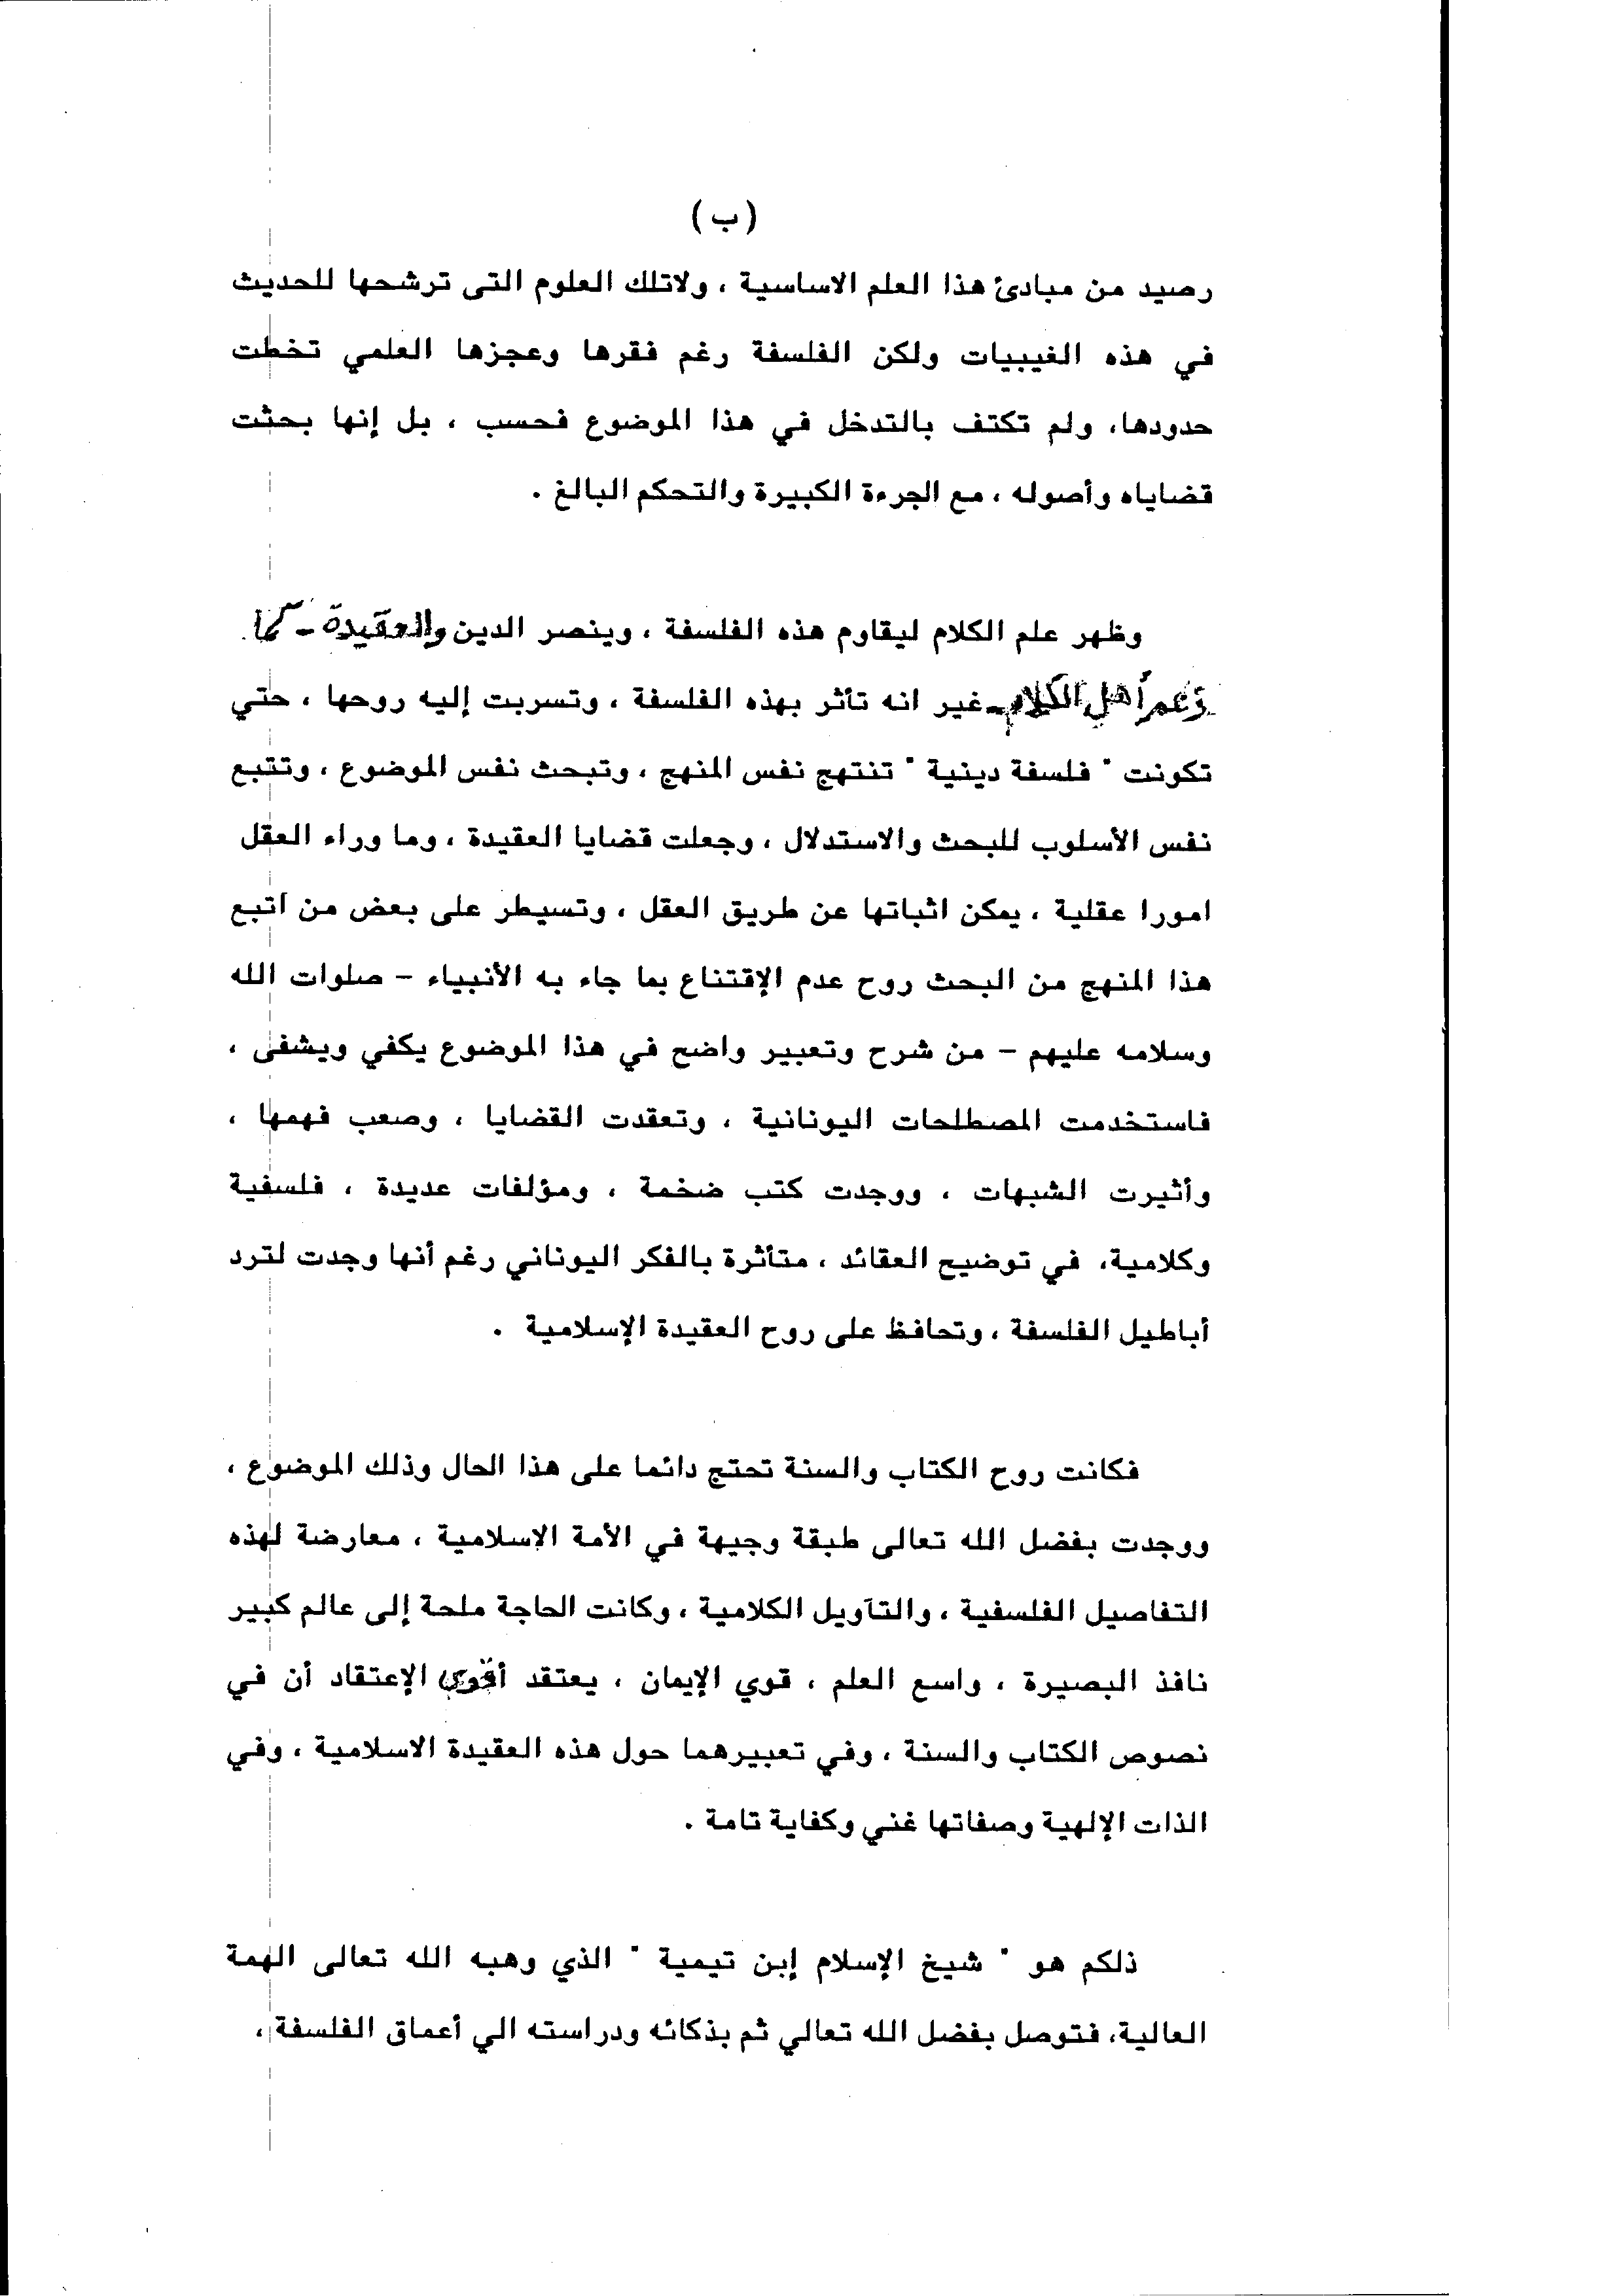 (ب)
رصيد من مبادئ هذا العلم الاساسية ، ولاتلك العلوم التى ترشحها للحديث
في هذه الغيبيات ولكن الفلسفة رغم فقرها وعجزها العلمي تخطت
حدودها، ولم تكتف بالتدخل في هذا الموضوع فحسب ، بل إنها بحثت
قضاياه وأصوله ، مع الجرءة الكبيرة والتحكم البالغ .
وظهر علم الكلام ليقاوم هذه الفلسفة ، وينصر الدين والعقيدة - كما
زعم أهل الكلام - غير انه تأثر بهذه الفلسفة ، وتسربت إليه روحها ، حتي
تكونت " فلسفة دينية " تنتهج نفس المنهج ، وتبحث نفس الموضوع ، وتتبع
نفس الأسلوب للبحث والاستدلال ، وجعلت قضايا العقيدة ، وما وراء العقل
امورا عقلية ، يمكن اثباتها عن طريق العقل ، وتسيطر على بعض من اتبع
هذا المنهج من البحث روح عدم الإقتناع بما جاء به الأنبياء - صلوات الله
وسلامه عليهم - من شرح وتعبير واضح في هذا الموضوع يكفي ويشفى ،
فاستخدمت المصطلحات اليونانية ، وتعقدت القضايا ، وصعب فهمها ،
وأثيرت الشبهات ، ووجدت كتب ضخمة ، ومؤلفات عديدة ، فلسفية
وكلامية، في توضيح العقائد ، متأثرة بالفكر اليوناني رغم أنها وجدت لترد
أباطيل الفلسفة ، وتحافظ على روح العقيدة الإسلامية .
فكانت روح الكتاب والسنة تحتج دائما على هذا الحال وذلك الموضوع ،
ووجدت بفضل الله تعالى طبقة وجيهة في الأمة الإسلامية ، معارضة لهذه
التفاصيل الفلسفية ، والتآويل الكلامية ، وكانت الحاجة ملحة إلى عالم كبير
نافذ البصيرة ، واسع العلم ، قوي الإيمان ، يعتقد أقوى الإعتقاد أن في
نصوص الكتاب والسنة ، وفي تعبيرهما حول هذه العقيدة الاسلامية ، وفي
الذات الإلهية وصفاتها غني وكفاية تامة .
ذلكم هو " شيخ الإسلام إبن تيمية " الذي وهبه الله تعالى الهمة
العالية، فتوصل بفضل الله تعالي ثم بذكائه ودراسته الي أعماق الفلسفة ،